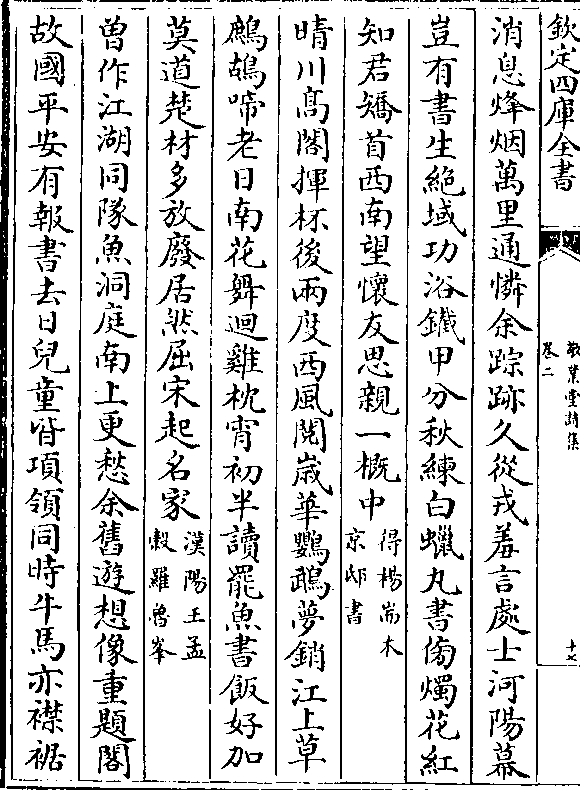 欽定四庫全書
敬業堂詩集
卷二
十七
消息烽烟萬里通憐余踪跡久從戎羞言處士河陽幕
豈有書生絶域功浴鐵甲分秋練白蠟丸書傍燭花紅
知君矯首西南望懷友思親一概中得楊耑木
京邸書
晴川髙閣揮杯後兩度西風閱嵗華鸚鵡夢銷江上草
鷓鴣啼老日南花舞迴雞枕宵初半讀罷魚書飯好加
莫道楚材多放廢居然屈宋起名家漢陽王孟
榖羅魯峯
曾作江湖同隊魚洞庭南上更愁余舊遊想像重題閣
故國平安有報書去日兒童皆項領同時牛馬亦襟裾